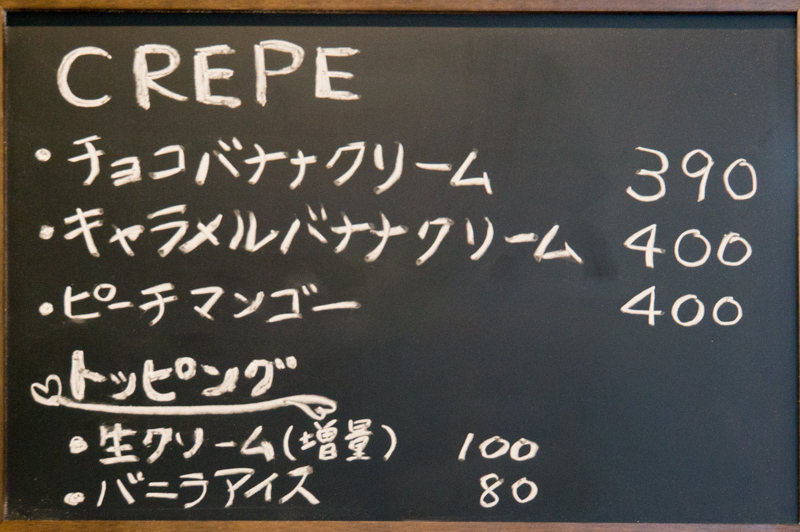 CREPE
・チョコバナナクリーム 390
・キャラメルバナナクリーム 400
・ピーチマンゴー 400
♡トッピング
・生クリーム(増量) 100
・バニラアイス 80